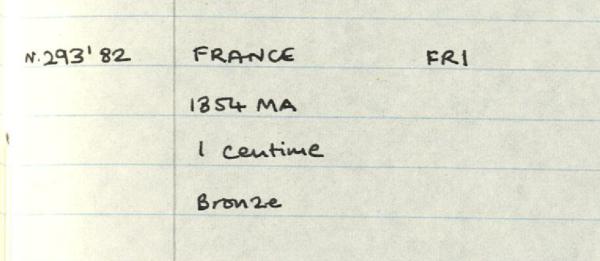 N.293'82 FRANCE FRI
1854 MA
1 Centime
Bronze